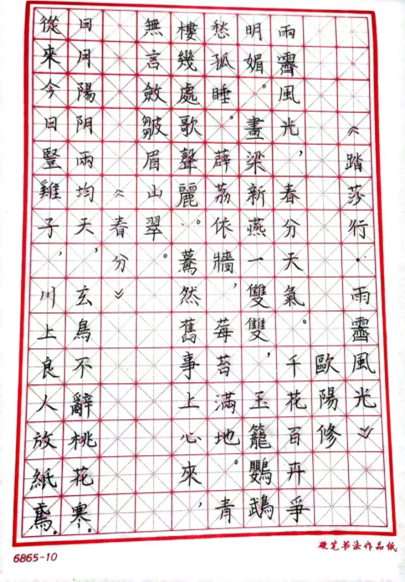 《踏莎行·雨霽風光》
歐陽修
雨霽風光，春分天氣。千花百卉爭
明媚。畫梁新燕一雙雙，玉籠鸚鵡
愁孤睡。薜荔依牆，莓苔滿地。青
樓幾處歌聲麗。驀然舊事上心來，
無言斂皺眉山翠。
《春分》
日月陽阴兩均天，玄鳥不辭桃花寒。
從來今日豎雞子，川上良人放紙鳶。
硬笔书法作品纸
6865-10